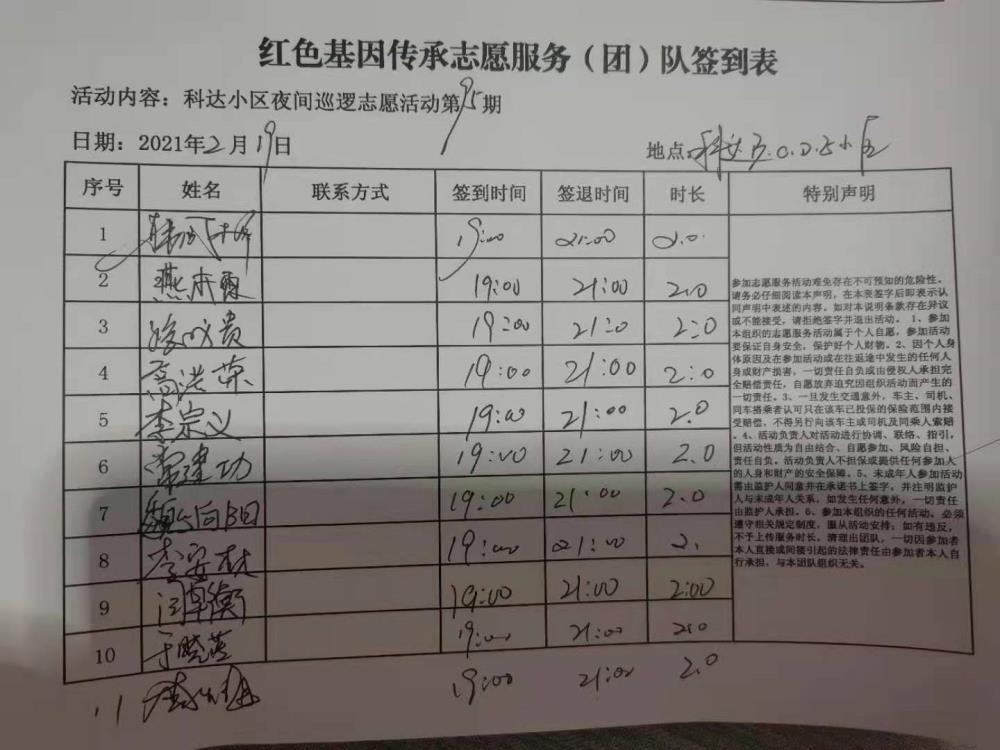 红色基因传承志愿服务（团）队签到表
活动内容：科达小区夜间巡逻志愿活动第95期
日期：2021年2月19日
地点：科达B.C.D.E小区
序号 姓名 联系方式 签到时间 签退时间 时长 特别声明
1 19:00 21:00 2.0
2 燕本霞 19:00 21:00 2.0
3 19:00 21:0 2:0
4 高洪荣 19:00 21:00 2:0
5 李宗义 19:00 21:00 2.0
6 常建功 19:00 21:00 2.0
7 魏向阳 19:00 21:00 2.0
8 李安林 19:00 21:00 2.
9 闫卓衡 19:00 21:00 2:00
10 于晓莲 19:00 21:00 2.0
11 19:00 21:00 2.0
参加志愿服务活动难免存在不可预知的危险性。
请务必仔细阅读本声明，在本表签字后即表示认
同声明中表述的内容。如对本说明条款存在异议
或不能接受，请拒绝签字并退出活动。1、参加
本组织的志愿服务活动属于个人自愿，参加活动
要保证自身安全，保护好个人财物。2、因个人身
体原因及在参加活动或在往返途中发生的任何人
身或财产损害，一切责任自负或由侵权人承担完
全赔偿责任，自愿放弃追究因组织活动而产生的
一切责任。3、一旦发生交通意外，车主、司机、
同车搭乘者认可只在该车已投保的保险范围内接
受赔偿，不得另行向该车主或司机及同乘人索赔
。4、活动负责人对活动进行协调、联络、指引，
但活动性质为自由结合、自愿参加、风险自担、
责任自负。活动负责人不担保或提供任何参加人
的人身和财产的安全保障。5、未成年人参加活动
需由监护人同意并在承诺书上签字，并注明监护
人与未成年人关系，如发生任何意外，一切责任
由监护人承担。6、参加本组织的任何活动，必须
遵守相关规定制度，服从活动安排；如有违反，
不予上传服务时长，清理出团队，一切因参加者
本人直接或间接引起的法律责任由参加者本人自
行承担，与本团队组织无关。